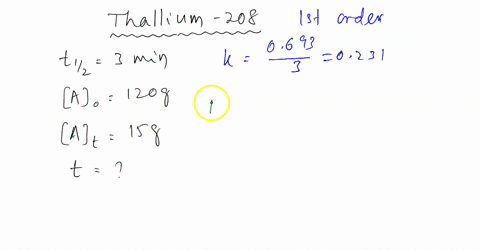 Thallium - 208 1st order
t1/2 = 3 min k = 0.693/3 = 0.231
[A]o = 120g
[A]t = 15g
t = ?